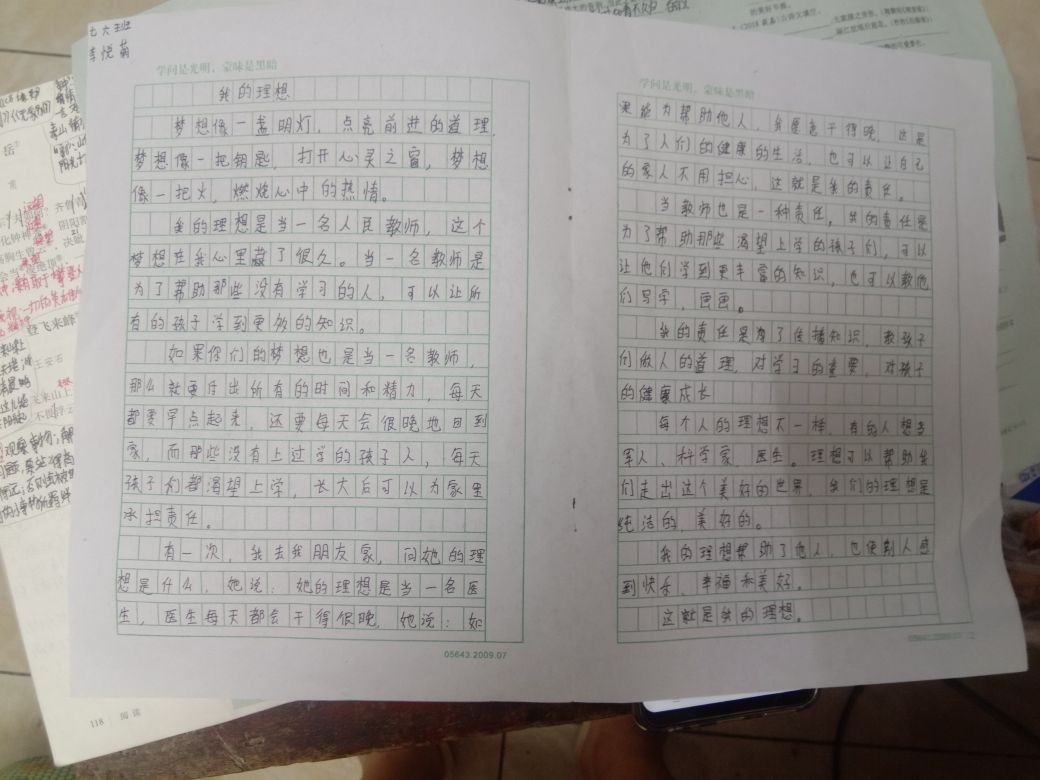 七六班
李悦菊
学问是光明，蒙昧是黑暗
我的理想
梦想像一盏明灯，点亮前进的道理，
梦想像一把钥匙，打开心灵之窗，梦想
像一把火，燃烧心中的热情。
我的理想是当一名人民教师，这个
梦想在我心里藏了很久。当一名教师是
为了帮助那些没有学习的人，可以让所
有的孩子学到更多的知识。
如果你们的梦想也是当一名教师，
那么就要付出所有的时间和精力，每天
都要早点起来，还要每天会很晚地回到
家，而那些没有上过学的孩子人，每天
孩子们都渴望上学，长大后可以为家里
承担责任。
有一次，我去我朋友家，问她的理
想是什么，她说：她的理想是当一名医
生，医生每天都会干得很晚，她说：如
05643.2009.07
学问是光明，蒙昧是黑暗
果能为帮助他人，我愿意干得晚，这是
为了人们的健康的生活，也可以让自己
的家人不用担心，这就是我的责任。
当教师也是一种责任，我的责任是
为了帮助那些渴望上学的孩子们，可以
让他们学到更丰富的知识，也可以教他
们写字，画画。
我的责任是为了传播知识，教孩子
们做人的道理，对学习的重要，对孩子
的健康成长
每个人的理想不一样，有的人想当
军人、科学家、医生。理想可以帮助我
们走出这个美好的世界，我们的理想是
纯洁的，美好的。
我的理想帮助了他人，也使别人感
到快乐，幸福和美好。
这就是我的理想。
05643.2009.07
118 阅读